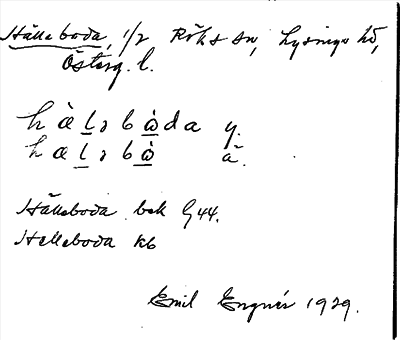 Hälleboda, 1/2 Röks sn, Lysings hd,
Österg. l.
hàlɜbὼda y.
halɜbὼ ä.
Hälleboda bek G44.
Helleboda kb
Emil Engnér 1929.